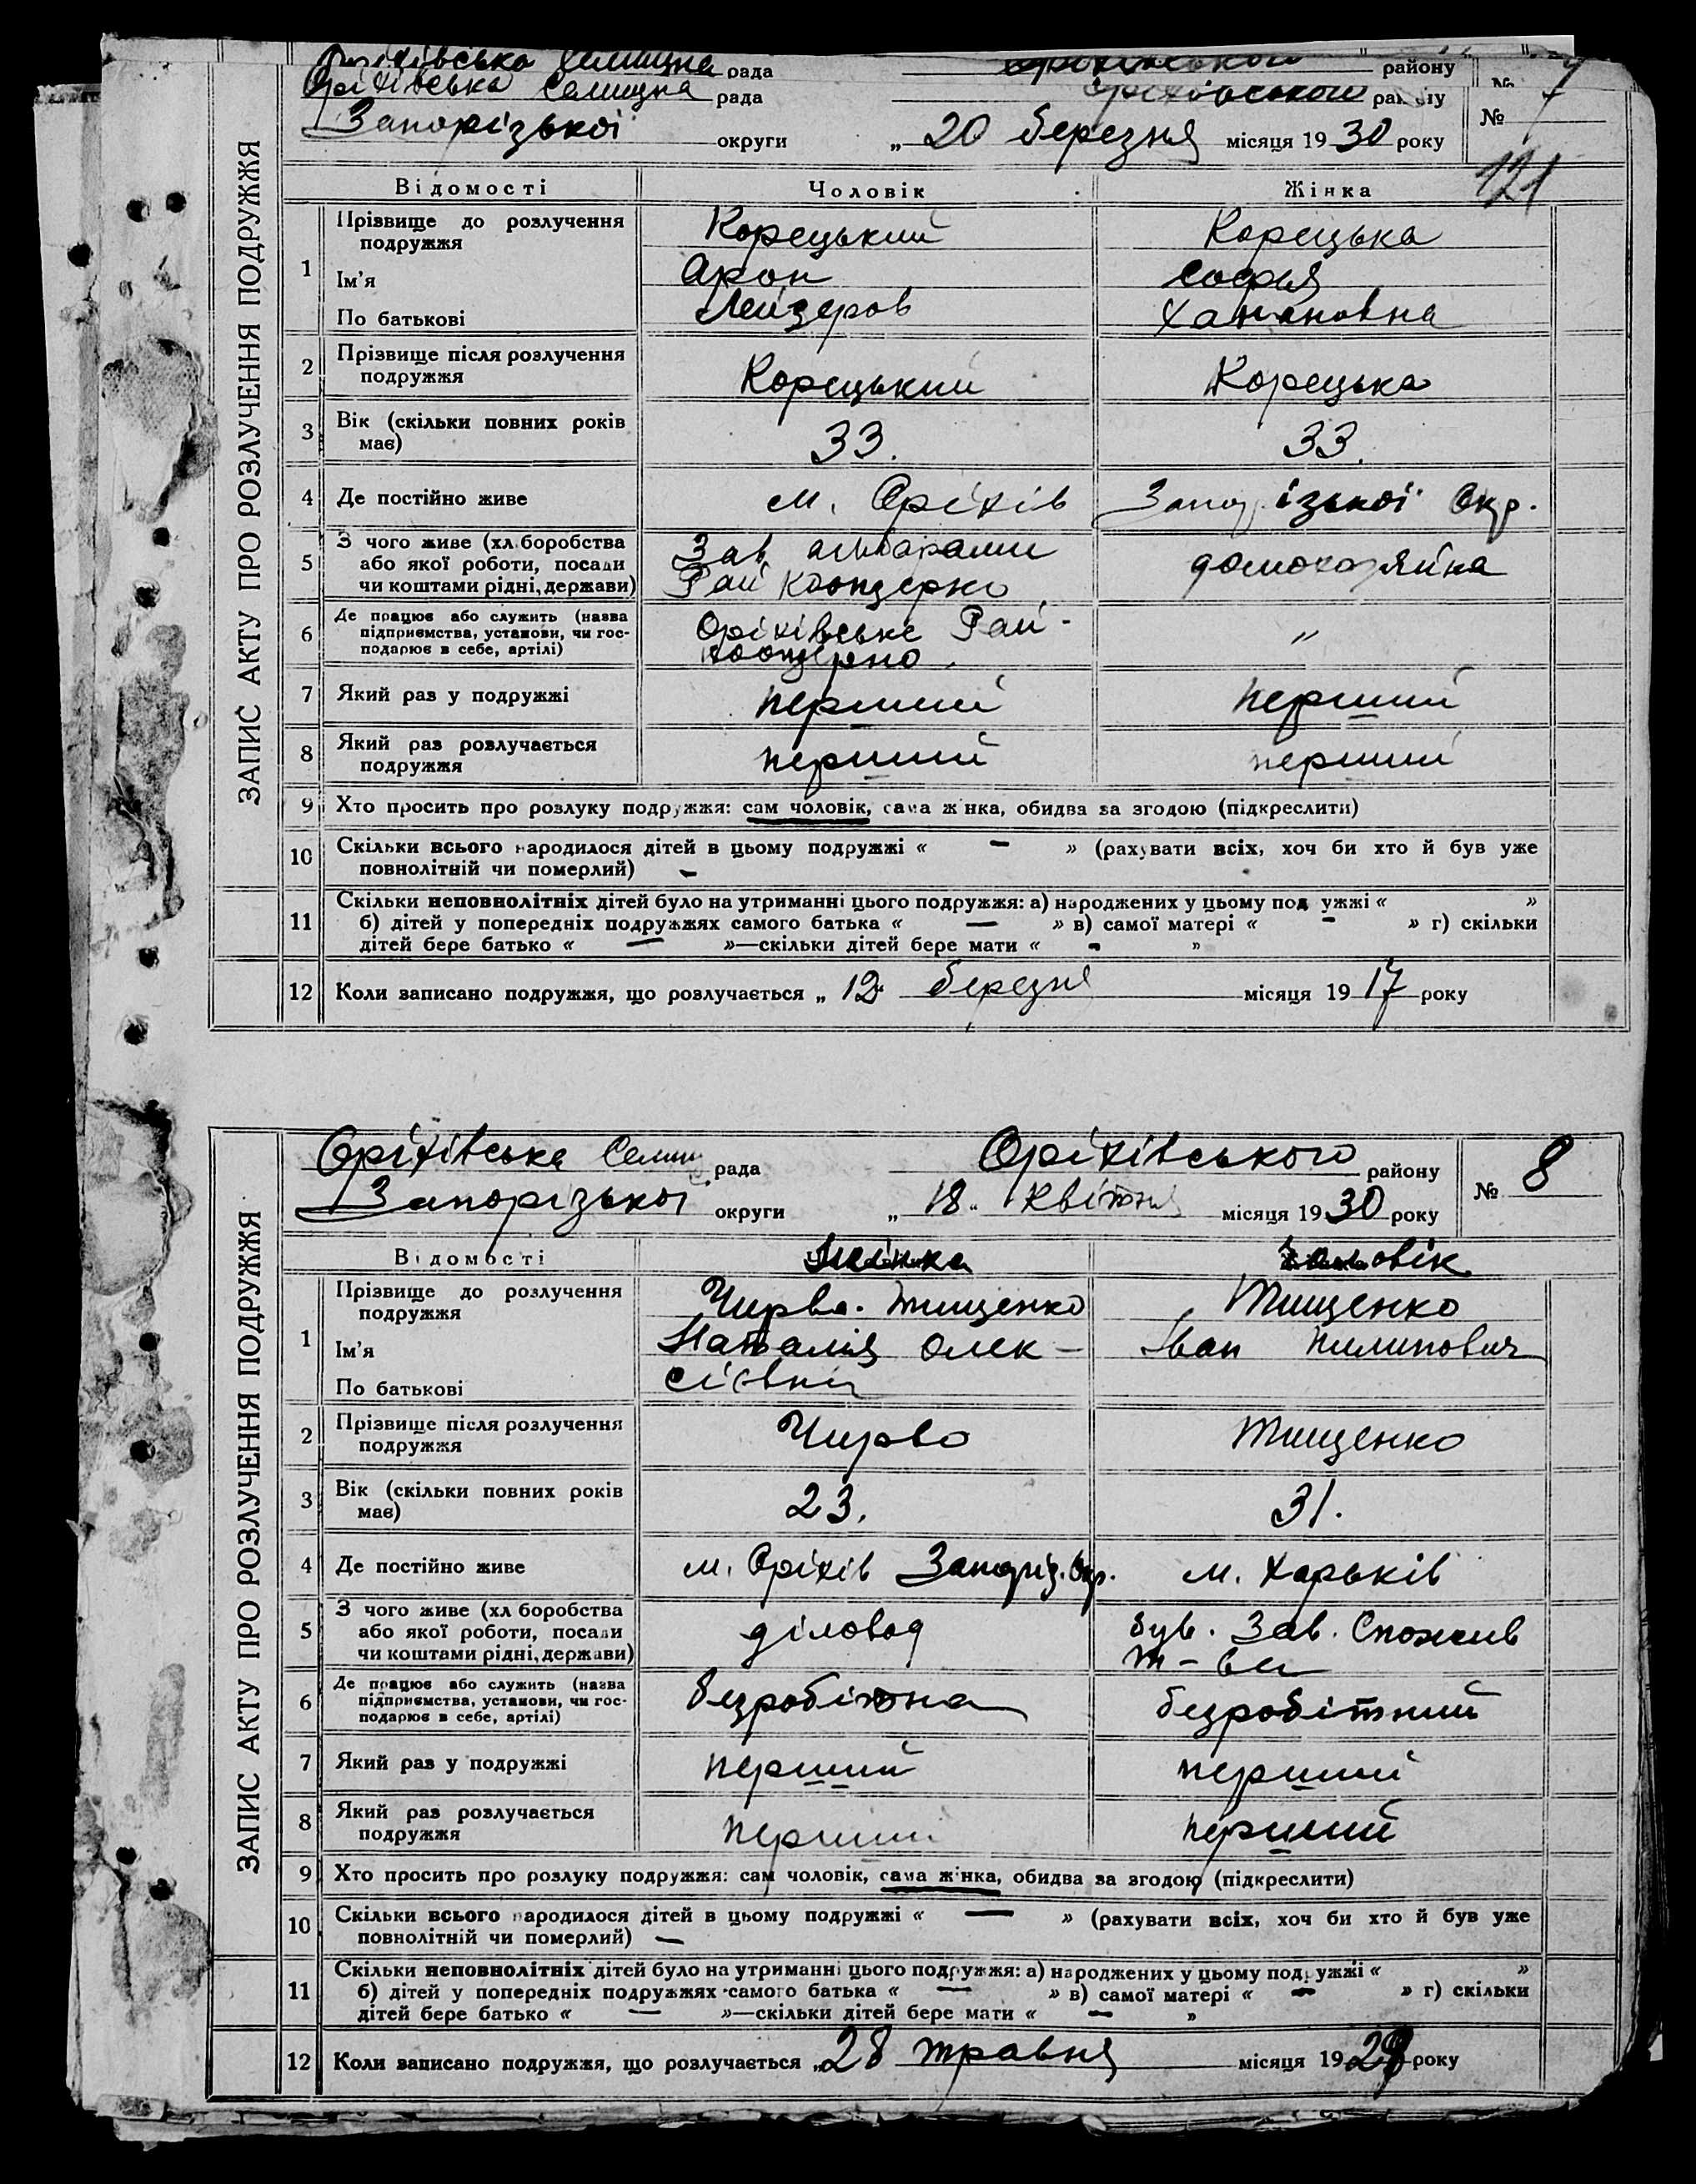 Оріхівська Селищна рада району №
Оріхівська Селищна рада Оріхівського району № 7
Запорізької округи „ 20 березня місяця 1930 року
121
ЗАПИС АКТУ ПРО РОЗЛУЧЕННЯ ПОДРУЖЖЯ
Відомості Чоловік Жінка
1 Прізвище до розлучення подружжя Корецький Корецька
Ім’я Арон Софія
По батькові Лейзеров Ханановна
2 Прізвище після розлучення подружжя Корецький Корецька
3 Вік (скільки повних років має) 33. 33.
4 Де постійно живе м. Оріхів Запорізької Окр.
5 З чого живе (хліборобства або якої роботи, посади чи коштами рідні, держави) Зав. амбарами Рай коопзерно домохазяйка
6 Де працює або служить (назва підприємства, установи, чи господарює в себе, артілі) Оріхівське Рай-коопзерно. „
7 Який раз у подружжі перший перший
8 Який раз розлучається подружжя перший перший
9 Хто просить про розлуку подружжя: сам чоловік, сама жінка, обидва за згодою (підкреслити)
10 Скільки всього народилося дітей в цьому подружжі « — » (рахувати всіх, хоч би хто й був уже
повнолітній чи померлий) —
11 Скільки неповнолітніх дітей було на утриманні цього подружжя: а) народжених у цьому подружжі « »
б) дітей у попередніх подружжях самого батька « — » в) самої матері « — » г) скільки
дітей бере батько « — »—скільки дітей бере мати « — »
12 Коли записано подружжя, що розлучається „ 12 „ березня місяця 1917 року
Оріхівська Селищ рада Оріхівського району № 8
Запорізької округи „ 18 „ Квітня місяця 1930 року
ЗАПИС АКТУ ПРО РОЗЛУЧЕННЯ ПОДРУЖЖЯ
Відомості Жінка Чоловік
1 Прізвище до розлучення подружжя Чирва-Тищенко Тищенко
Ім’я Наталія Олек- Іван Пилипович
По батькові сіівна
2 Прізвище після розлучення подружжя Чирво Тищенко
3 Вік (скільки повних років має) 23. 31.
4 Де постійно живе м. Оріхів Запоріз. Окр. м. Харьків
5 З чого живе (хліборобства або якої роботи, посади чи коштами рідні, держави) діловод був. Зав. Спожив т-ва
6 Де працює або служить (назва підприємства, установи, чи господарює в себе, артілі) безробітна безробітний
7 Який раз у подружжі перший перший
8 Який раз розлучається подружжя перший перший
9 Хто просить про розлуку подружжя: сам чоловік, сама жінка, обидва за згодою (підкреслити)
10 Скільки всього народилося дітей в цьому подружжі « — » (рахувати всіх, хоч би хто й був уже
повнолітній чи померлий) —
11 Скільки неповнолітніх дітей було на утриманні цього подружжя: а) народжених у цьому подружжі « »
б) дітей у попередніх подружжях самого батька « — » в) самої матері « — » г) скільки
дітей бере батько « — »—скільки дітей бере мати « — »
12 Коли записано подружжя, що розлучається „28 травня місяця 1929 року